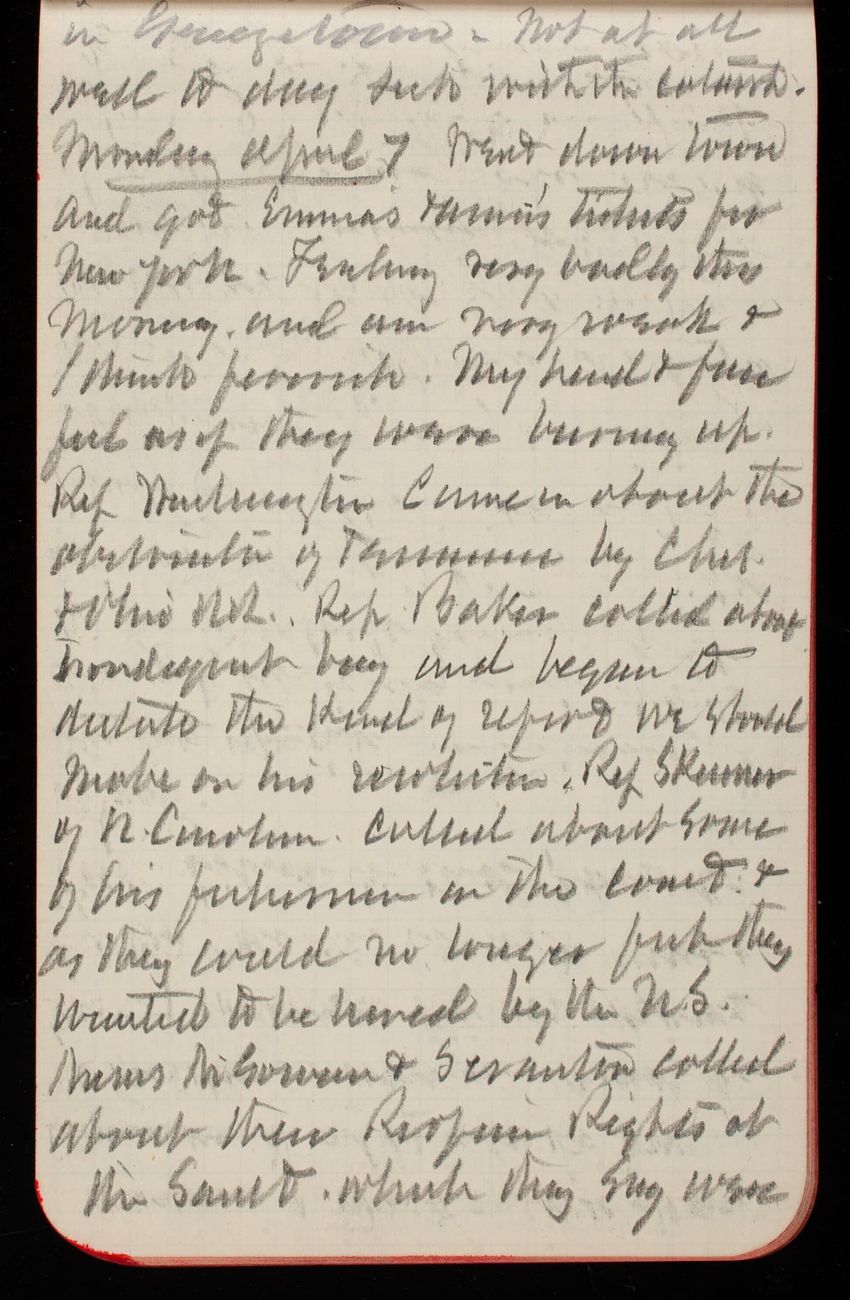 in Georgetown - Not at all
well to day sick with the
Monday April 7 Went down town
and got Emma's & tickets for
New York. Feeling very badly this
Morning. and am very weak &
I think feverish. My head & face
feel as if they were burning up.
Rep Washington Came in about the
obstruction of Tennessee by Ches.
& Ohio RR. Rep Baker called about
Irondequoit bay and began to
dictate the Kind of report we should
Make on his resolution. Rep Skinner
of N. Carolina. Called about some
of his fishermen on the coast. &
as they could no longer fish they
wanted to be hired by the U.S.
McGowan & Scranton called
about their Riparian Rights at
the Sault. which they say were